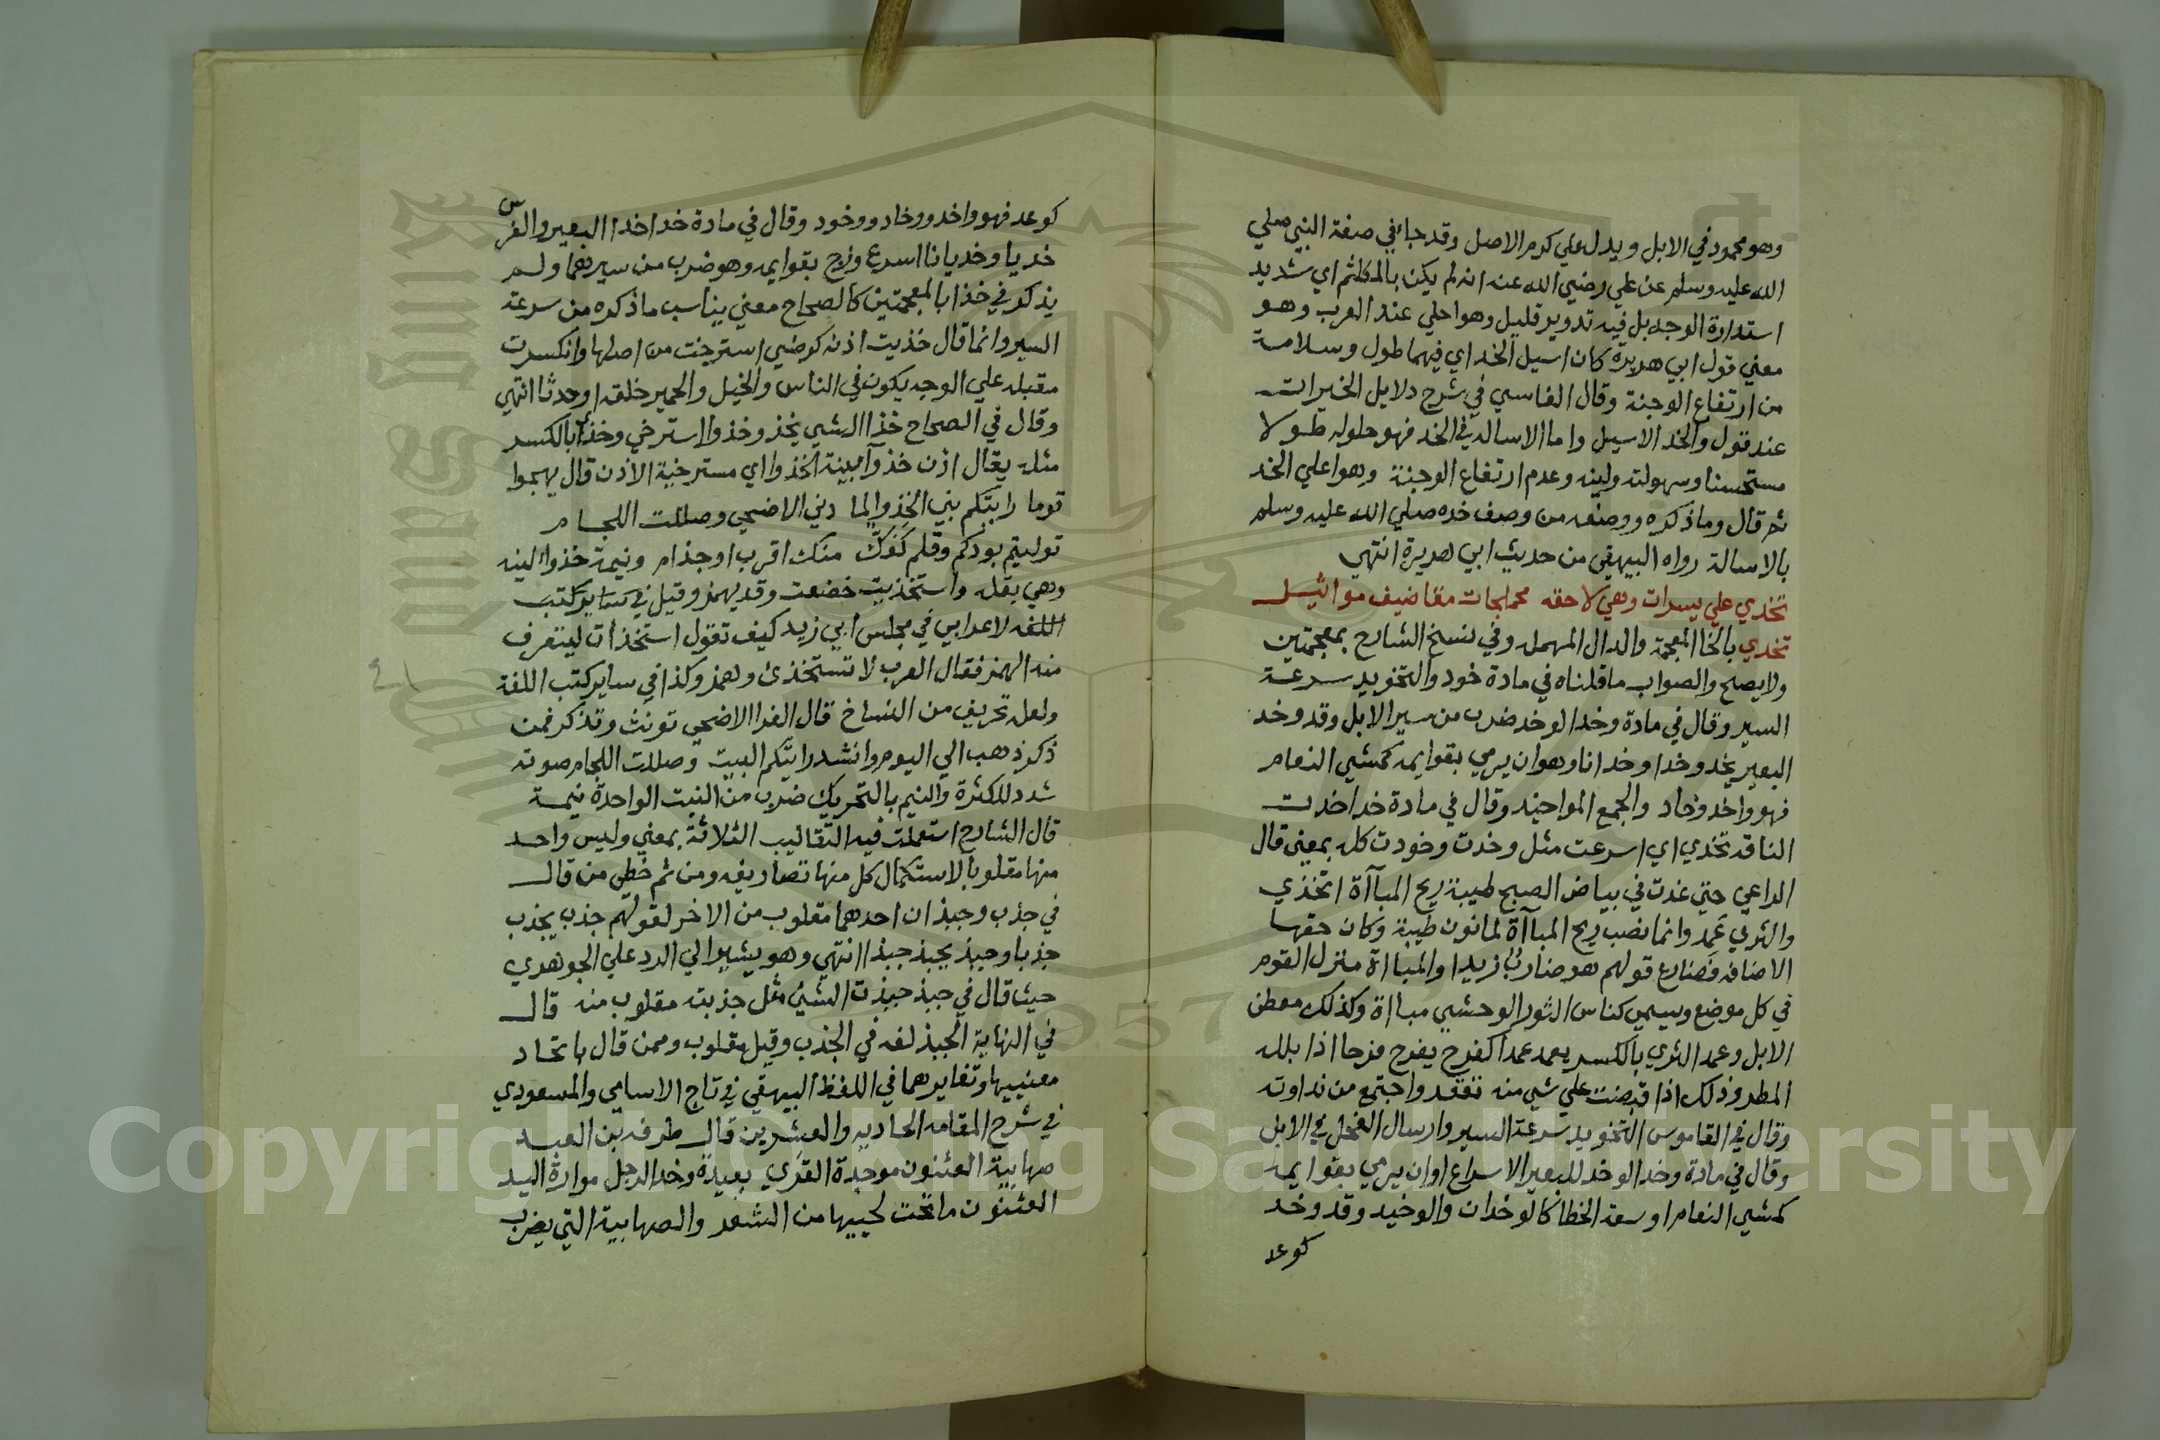 وهو محمود في الابل ويدل علي كرم الاصل وقد جا في صفة النبي صلي
الله عليه وسلم عن علي رضي الله عنه انه لم يكن بالمكلثم اي شديد
استدارة الوجه بل فيه تدوير قليل وهو احلي عند العرب وهو
معني قول ابي هريرة كان اسيل الخد اي فيهما طول وسلامة
من ارتفاع الوجنة وقال الفاسي في شرح دلايل الخيرات
عند قول والخد الاسيل واما الاسالة في الخد فهو حلوله طولا
مستحسنا وسهولته ولينه وعدم ارتفاع الوجنة وهو اعلي الخد
ثم قال وما ذكره ووصفه من وصف خده صلي الله عليه وسلم
بالاسالة رواه البيهقي من حديث ابي هريرة انتهي
تخدي علي يسرات وهي لاحقه مواثيل
تخدي بالخا المعجمة والدال المهملة وفي نسخ الشارح بمعجمتين
ولا يصح والصواب ما قلناه في مادة خود والتخويد سرعة
السير وقال في مادة وخد الوخد ضرب من سير الابل وقد وخد
البعير يخد وخدا وخدانا وهو ان يرمي بقوايمه كمشي النعام
فهو واخد وخاد والجمع المواخيد وقال في مادة خدا خدت
الناقة تخدي اي اسرعت مثل وخدت وخودت كله بمعني قال
الراعي حتي غدت في بياض الصبح طيبة ريح المباآة اتخذي
والثري عَمِد وانما نصب ريح المباآة لما نون طيبة وكان حقها
الاضافة فضارع قولهم هو ضارب زيدا والمباآة منزل القوم
في كل موضع ويسمي كناس الثور الوحشي مباآة وكذلك معطن
الابل وعمد الثري بالكسر يعمد عمدا كفرح يفرح فرحا اذا بلله
المطر وذلك اذا قبضت علي شي منه تعقد واجتمع من نداوته
وقال في القاموس التخويد سرعة السير وارسال الفحل في الابل
وقال في مادة وخد الوخد للبعير الاسراع او ان يرمي بقوايمه
كمشي النعام او سعة الخطا كالوخدان والوخيد وقد وخد
كوعد
كوعد فهو واخد ووخاد ووخود وقال في مادة خدا خدا البعير والفرس
خديا وخديانا اسرع وزج بقوايمه وهو ضرب من سيرهما ولم
يذكر في خذا بالمعجمتين كالصحاح معني يناسب ما ذكره من سرعة
السير وانما قال خذيت اذنه كرضي استرخت من اصلها وانكسرت
مقبلة علي الوجه يكون في الناس والخيل والحمير خلقة او حدثا انتهي
وقال في الصحاح خذا الشي يخذو خذوا استرخي وخذي بالكسر
مثله يقال اذن خذوا بينة الخذوا اي مسترخية الاذن قال يهجوا
قوما رايتكم بني الخذوا لما دني الاضحي وصللت اللجام
توليتم بودكم وقلتم منك اقرب او جذام ونيمة خذوا لينه
وهي بقله واستخذيت خضعت وقد يهمز وقيل في ساير كتب
اللغه لاعرابي في مجلس ابي زيد كيف تقول استخذات ليتعرف
منه الهمز فقال العرب لا تستخذئ وهمز وكذا في ساير كتب اللغة
ولعله تحريف من النساخ قال الفرا الاضحي تونث وتذكر فمن
ذكر ذهب الي اليوم وانشد رايتكم البيت وصللت اللجام صوته
شدد للكثرة والنيم بالتحريك ضرب من النبت الواحدة نيمة
قال الشارح استعملت فيه التقاليب الثلاثة بمعني وليس واحد
منها مقلوبا لاستكمال كل منها تصاريفه ومن ثم خطي من قال
في جذب وجبذ ان احدهما مقلوب من الاخر لقولهم جذب يجذب
جذبا وجبذ يجبذ جبذا انتهي وهو يشير الي الرد علي الجوهري
حيث قال في جبذ جبذت الشي مثل جذبته مقلوب منه قال
في النهاية الجبذ لغه في الجذب وقيل مقلوب وممن قال باتحاد
معنييها وتغايرهما في اللفظ البيهقي في تاج الاسامي والمسعودي
في شرح المقامه الحاديه والعشرين قال طرفه بن العبد
صهابية العثنون موجدة القري بعيدة وخد الرجل موارة اليد
العثنون ما تحت لحييها من الشعر والصهابية التي يضرب
Copyright © King Saud University
1957